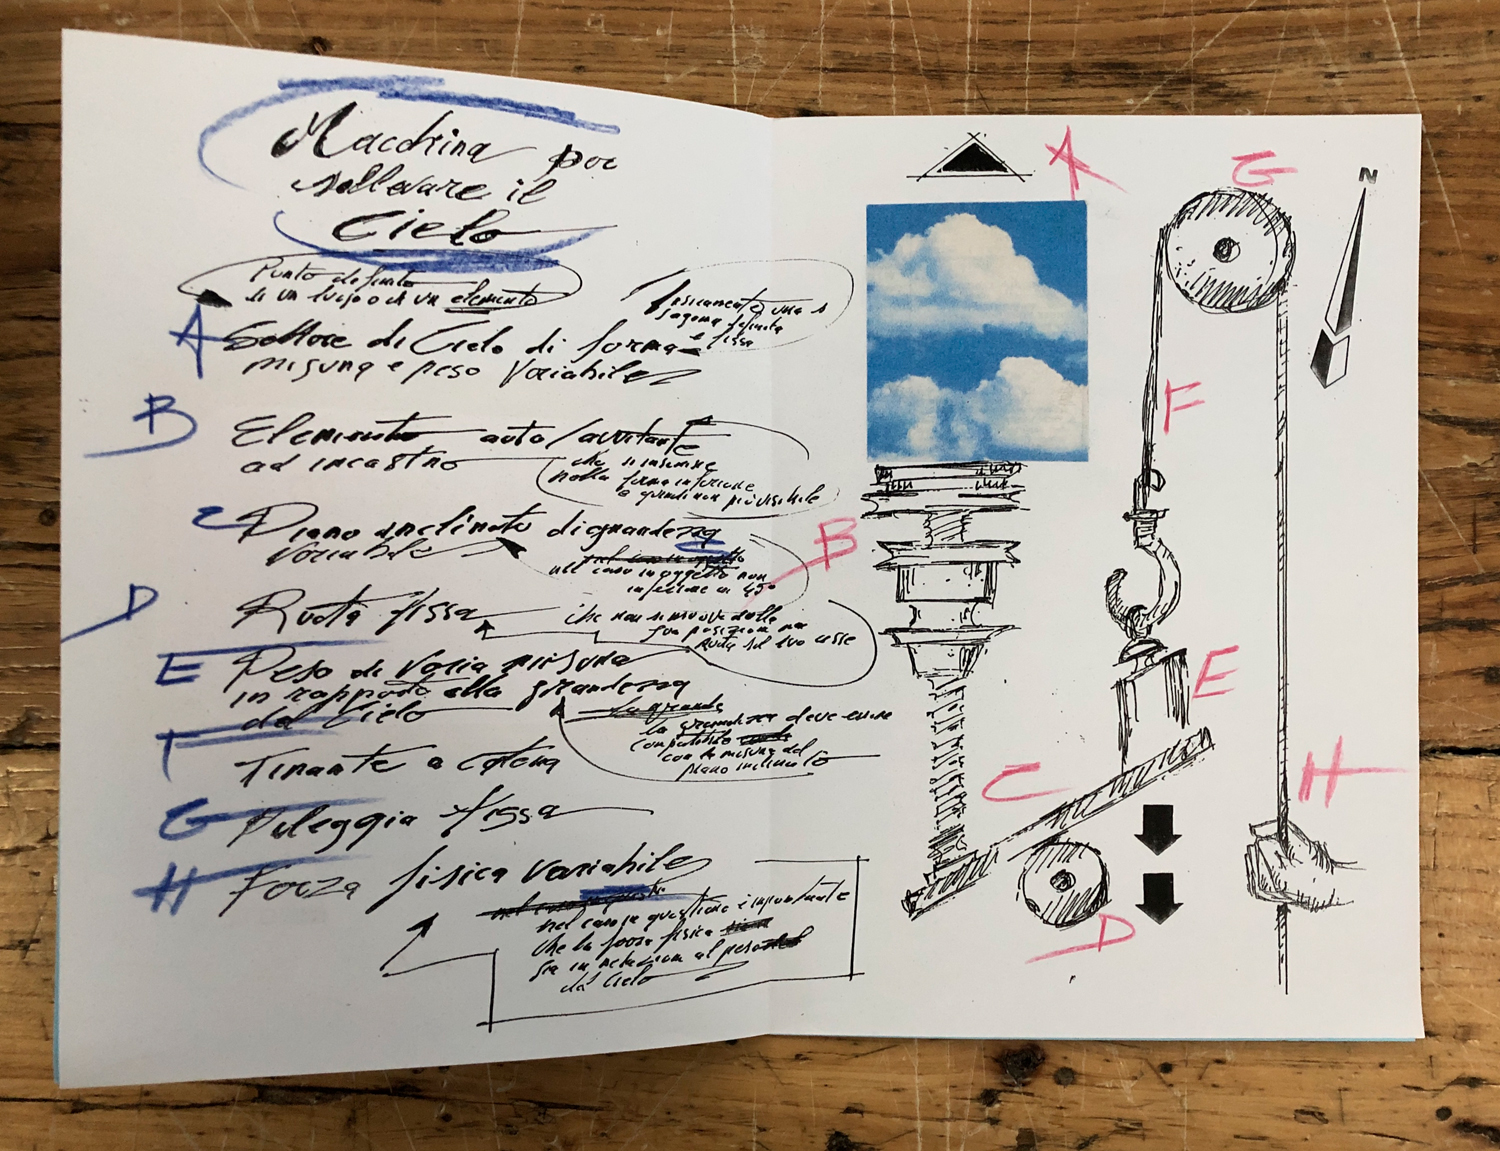 Macchina per
sollevare il
Cielo
Punto definito
di un luogo o di un elemento
Fisicamente una
sagoma definita
e fissa
A Settore di Cielo di forma
misura e peso Variabile
B Elemento auto/avvitante
ad incastro
che si inserisce
nella forma inferiore
e quindi non più visibile
C Piano inclinato di grandezza
Variabile
nel caso in oggetto non
inferiore ai 45°
D Ruota fissa
che non si muove dalla
sua posizione ma
ruota sul suo asse
E Peso di Varia misura
in rapporto alla grandezza
del Cielo
La grande
la grandezza deve essere
compatibile
con la misura del
piano inclinato
F Tirante a catena
G Puleggia fissa
H Forza fisica variabile
nel caso in questione è importante
che la forza fisica
sia in relazione al peso
del Cielo
A
G
N
F
B
E
C
H
D